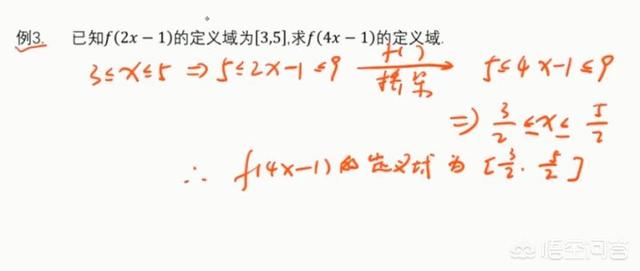 例3. 已知f(2x − 1)的定义域为[3,5],求f(4x − 1)的定义域.
3≤x≤5 ⇒ 5≤2x-1≤9 f( ) 括号 → 5≤4x-1≤9
⇒ 3/2 ≤x≤ 5/2
∴ f(4x-1)的定义域为[3/2, 5/2]
悟空问答